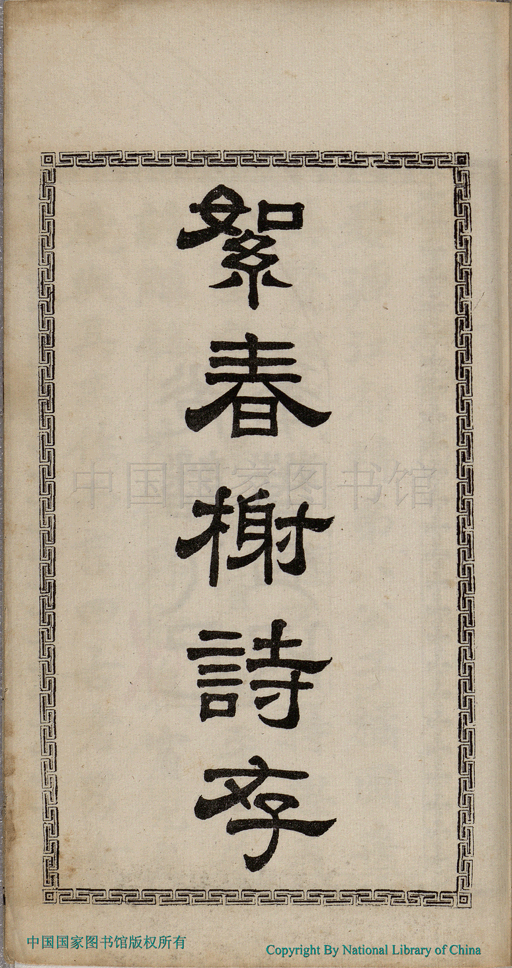 絮春榭詩存
中国国家图书馆
中国国家图书馆版权所有
Copyright By National Library of China